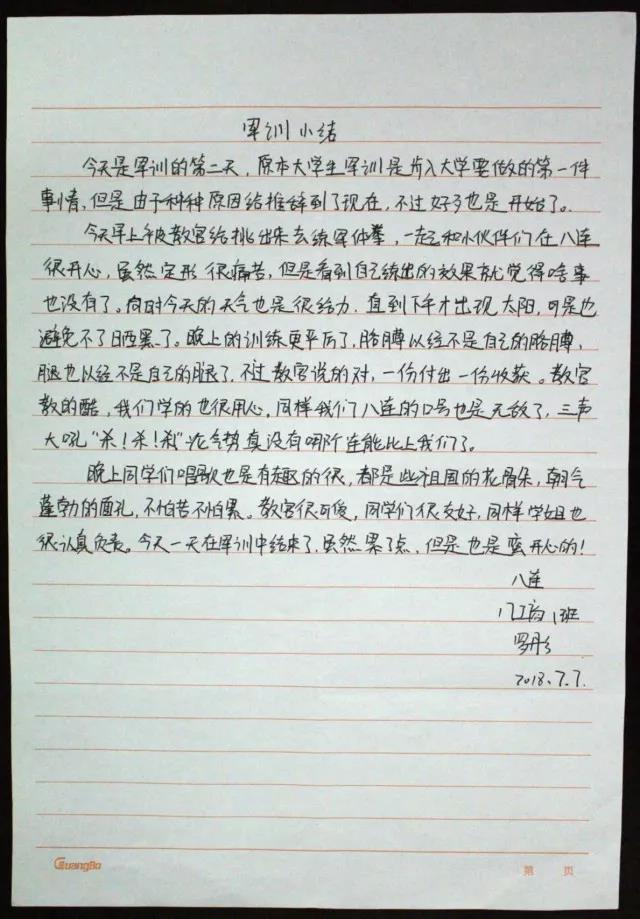 军训小结
今天是军训的第二天，原本大学生军训是步入大学要做的第一件
事情，但是由于种种原因给推辞到了现在，不过好歹也是开始了。
今天早上被教官给挑出来去练军体拳，一起和小伙伴们在八连
很开心，虽然定形很痛苦，但是看到自己练出的效果就觉得啥事
也没有了。同时今天的天气也是很给力，直到下午才出现太阳，可是也
避免不了晒黑了。晚上的训练更平厉了，胳膊以经不是自己的胳膊，
腿也以经不是自己的腿了，不过教官说的对，一份付出一份收获。教官
教的酷，我们学的也很用心，同样我们八连的口号也是无敌了，三声
大吼“杀！杀！杀”论气势真没有哪个连能比上我们了。
晚上同学们唱歌也是有趣的很，都是些祖国的花骨朵，朝气
蓬勃的面孔，不怕苦不怕累。教官很可爱，同学们很友好，同样学姐也
很认真负责。今天一天在军训中结束了，虽然累了点，但是也是蛮开心的！
八连
1班
罗彤
2018.7.7.
GuangBo
第 页